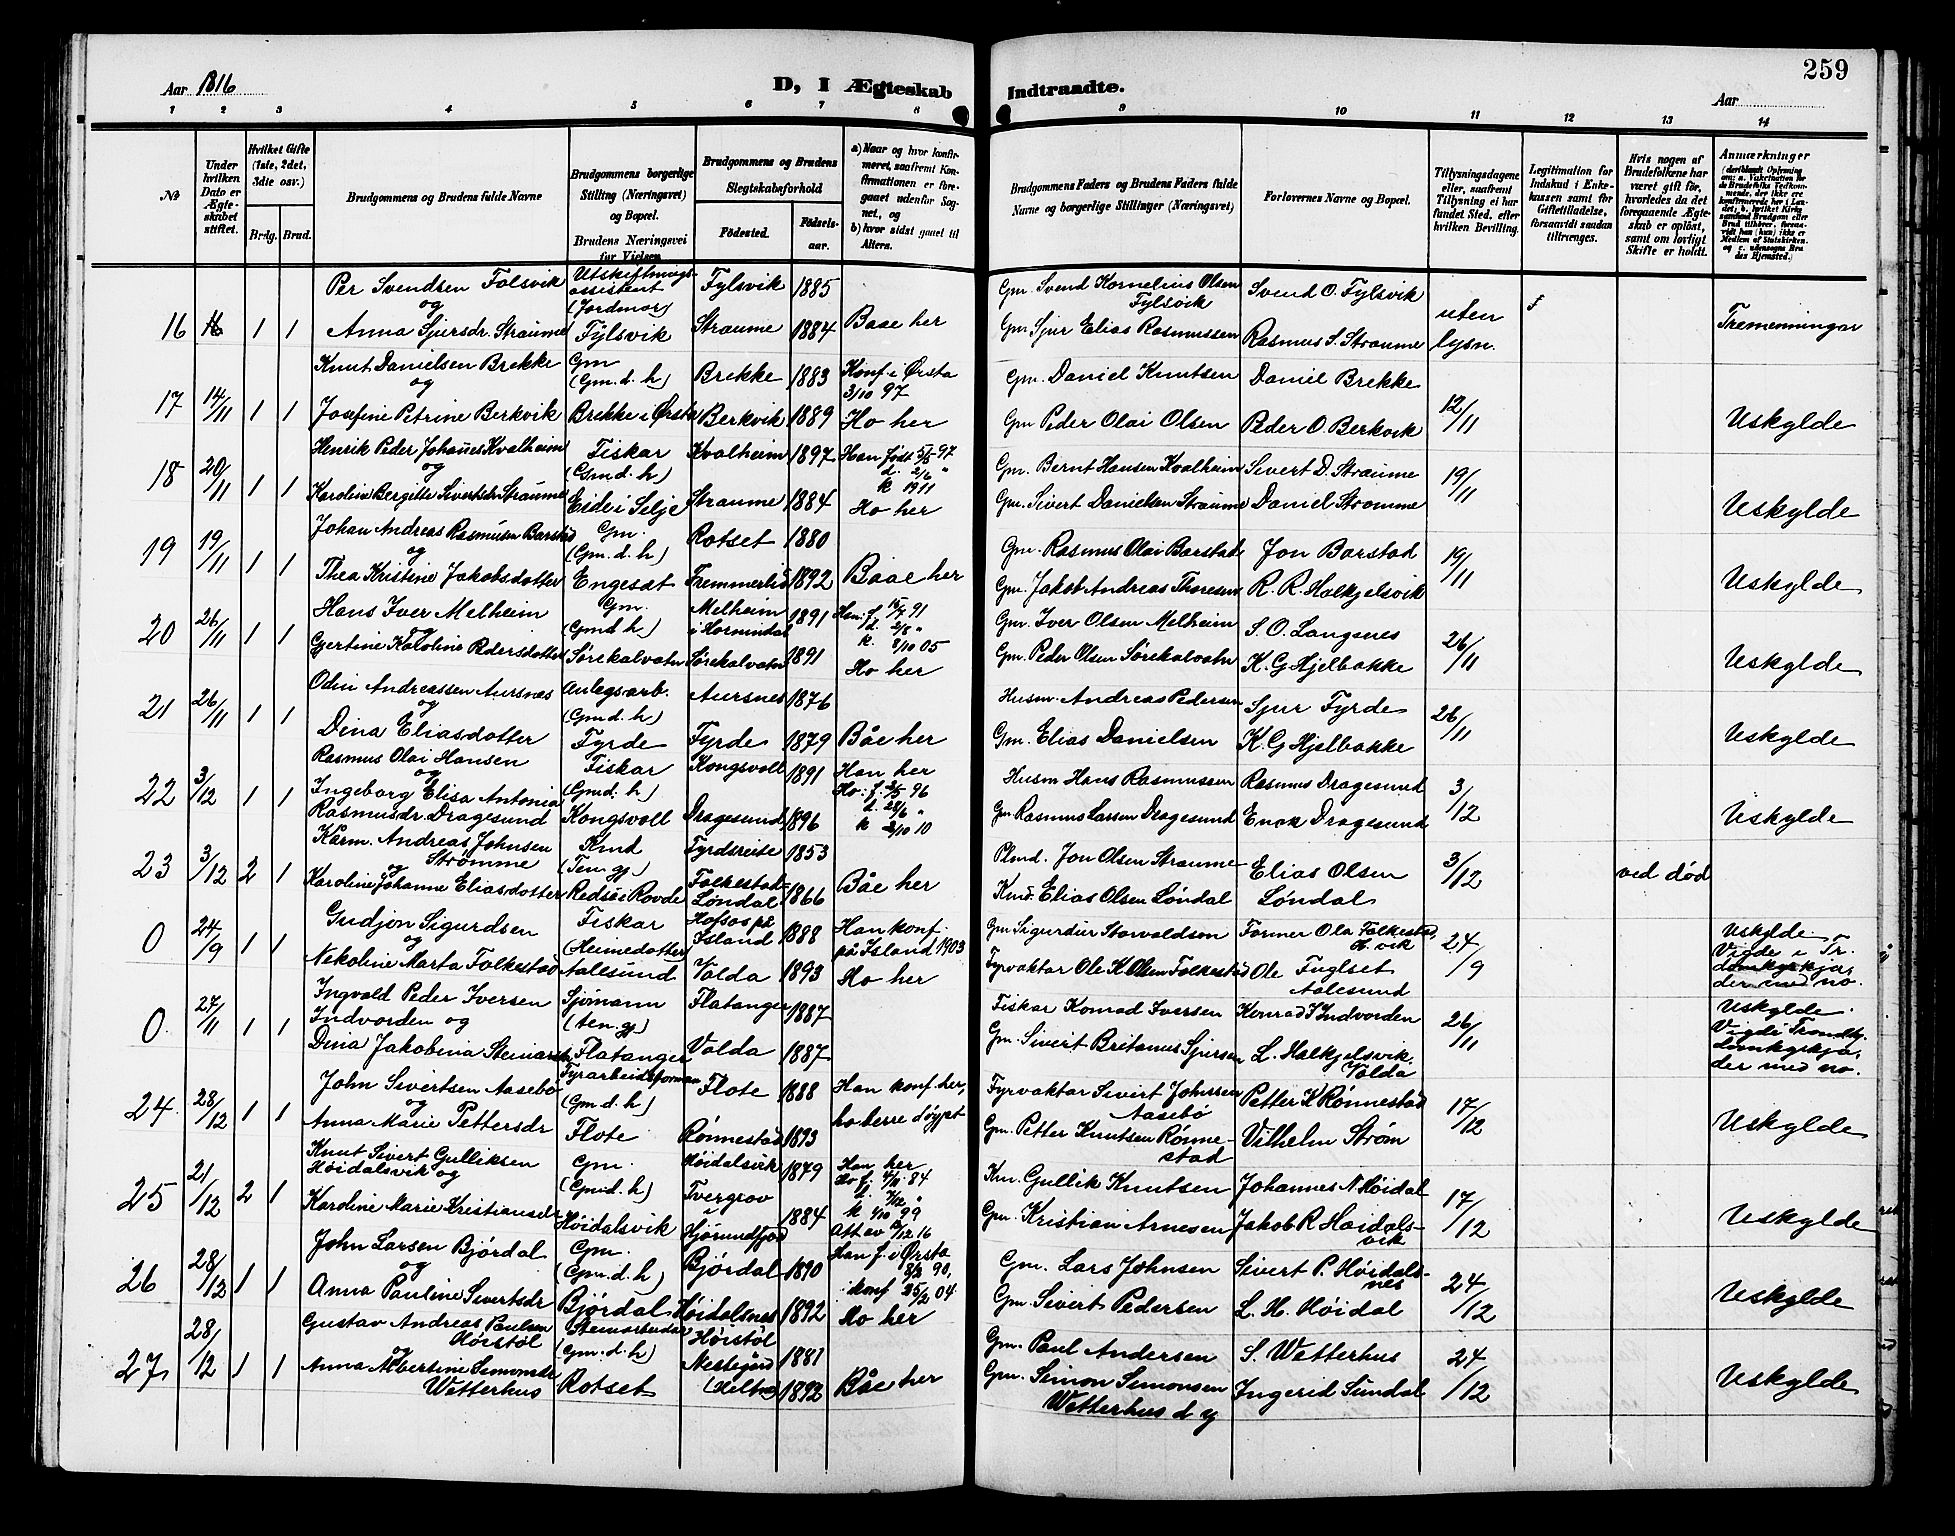 259
Aar 1816
D, I Ægteskab Indtraadte.
Aar
1 2 3 4 5 6 7 8 9 10 11 12 13 14
№
Under hvilken Dato er Ægteskabet stiftet.
Hvilket Gifte (1ste, 2det, 3die osv.)
Brdg. Brud.
Brudgommens og Brudens fulde Navne
Brudgommens borgerlige Stilling (Næringsvei) og Bopæl.
Brudens Næringsvei før Vielsen
Brudgommens og Brudens Slegtskabsforhold
Fødested.
Fødselsaar.
a) Naar og hvor konfirmeret, saafremt Konfirmationen er foregaaet udenfor Sognet, og
b) hvor sidst gaaet til Alters.
Brudgommens Faders og Brudens Faders fulde Navne og borgerlige Stillinger (Næringsvei)
Forlovernes Navne og Bopæl.
Tillysningsdagene eller, saafremt Tillysning ei har fundet Sted, efter hvilken Bevilling.
Legitimation for Indskud i Enkekassen samt for Giftetilladelse, forsaavidt saadan tiltrænges.
Hvis nogen af Brudefolkene har været gift før, hvorledes da det foregaaende Ægteskab er opløst, samt om lovligt Skifte er holdt.
Anmærkninger
Per Svendsen Folsvik Utskiftningsassistent Fylsvik 1885 Gm. Svend Kornelius Olsen Fylsvik Svend O. Fylsvik
og (Jordmor) uten
16 1 1 Anna Sjursdr. Straume Fylsvik Straume 1884 Baae her Gm Sjur Elias Rasmussen Rasmus S. Straume lysn. Tremenninger
Knut Danielsen Brekke Gm Brekke 1883 Konf. i Ørsta 3/10 97 Gm. Daniel Knutsen Daniel Brekke
og (Gm. d. h)
17 14/11 1 1 Josefine Petrine Berkvik Brekke i Ørsta Berkvik 1889 Ho her Gm Peder Olai Olsen Peder O. Berkvik 12/11 Uskylde
Henrik Peder Johanes Kvalheim Fiskar Kvalheim 1897 Han født 5/5 97 Gm. Bernt Hansen Kvalheim Sivert D. Straume
og (Gmd. h) d. 2/6 "
18 20/11 1 1 k 1911 19/11
Karoline Bergitte Sivertsdr Straume Eide i Selje Straume 1884 Ho her Gm. Sivert Danielsen Straume Daniel Strømme Uskylde
Johan Andreas Rasmusen Barstad Gm. Rotset 1880 Gm. Rasmus Olai Barstad Jon Barstad
19 19/11 1 1 og (Gm. d. h) 19/11
Thea Kristine Jakobsdotter Engeset 1892 Båe her Gm. Jakob Andreas Thoresen R. R. Halkjelsvik Uskylde
Hans Iver Melheim Gm. Melheim i Hornindal 1891 Han: f. 15/7 91 Gm. Iver Olsen Melheim S. O. Langsnes
20 26/11 1 1 og (Gmd. h) d. 2/8 " k. 8/10 05 26/11
Gjertine Karoline Pedersdotter Sørekalvatn Sørekalvatn 1891 Ho her Gm. Peder Olsen Sørekalvatn K. G Hjelbakke Uskylde
Odin Andreassen Aursnes Anlegsarb. Aursnes 1876 Husm. Andreas Pedersen Sjur Fyrde
21 26/11 1 1 og (Gmd. h) 26/11
Dina Eliasdotter Fyrde Fyrde 1879 Båe her Gm. Elias Danielsen K. G Hjelbakke Uskylde
Rasmus Olai Hansen Fiskar Kongsvoll 1891 Han her Husm Hans Rasmussen Rasmus Dragesund
22 3/12 1 1 og (Gmd. h) Ho: f. 2/5 96 3/12
Ingeborg Elisa Antonia d. 28/6 "
Rasmusdr Dragesund Kongsvoll Dragesund 1896 k 2/10 10 Gm Rasmus Larsen Dragesund Dragesund Uskylde
Kårm. Andreas Johnsen Strømme Kmd Fyrdsreite 1853 Plmd. Jon Olsen Straume Elias Olsen Løndal
23 3/12 2 1 og (Ten. gj) 3/12 ved død
Karoline Johanne Eliasdotter Redsø i Rovde Folkestad Løndal 1866 Båe her Kmd. Elias Olsen Løndal
Gudjon Sigurdsen Fiskar Hofsos på Island 1888 Han konf. på Island 1903 Gm Sigurdur Storvaldson Former Ola Folkestad, Uskylde.
0 24/9 1 1 og (Heimedotter) 24/9 Vigde i Tr.
Nekoline Marta Folkestad Aalesund Volda 1893 Ho her Fyrvaktar Ole K. Olsen Folkestad Ole Fuglset Aalesund domkyrkja, der med no.
Ingvald Peder Iversen Sjømann Flatanger 1887 Fiskar Konrad Iversen Konrad I Indvorden Uskylde.
0 27/11 1 1 Indvorden og (ten. gj) 26/11 Vigde i Trondhj.
Dina Jakobina Flatanger Volda 1887 Gm. Sivert Britanus Sjursen L. Halkjelsvik Volda domkyrkja, der med no.
John Sivertsen Aasebø Fyrarbeidsforman Flote 1888 Han konf. her, Fyrvaktar Sivert Johnsen Aasebø Petter K Rønnestad
24 28/12 1 1 og (Gm. d. h) ho berre døypt 17/12
Anna Marie Pettersdr Flote Rønnestad 1893 Gm. Petter Knutsen Rønnestad Vilhelm Strøm Uskylde
Knut Sivert Gulliksen Gm. Høidalsvik 1879 Han her Km. Gullik Knutsen Johannes N. Høidal
25 21/12 2 1 Høidalsvik og (Gmd. h) Ho f. 4/11 84 17/12
Karoline Marie Kristiansdr Høidalsvik Tvergrov i Hjørundfjord 1884 k 1/10 99 Att av 12/12 16 Gm. Kristian Arnesen Jakob R Høidalsvik Uskylde
John Larsen Bjørdal Gm. Bjørdal 1890 Han f. i Ørsta 8/2 90, Gm. Lars Johnsen Sivert P. Høidalsnes
26 28/12 1 1 og (Gm. d. h) konf 25/2 04 24/12
Anna Pauline Sivertsdr Bjørdal Høidalsnes 1892 Ho her Gm Sivert Pedersen L. H. Høidal Uskylde
Gustav Andreas Paulsen Høistøl Steinarbeidar Høistøl 1881 Gm. Paul Andersen S. Wetterhus
27 28/12 1 1 og (Gm. d. h) 24/12
Anna Albertine Simonsdr Wetterhus Rotset 1892 Båe her Gm. Simon Simonsen Wetterhus d y Ingerid Sundal Uskylde